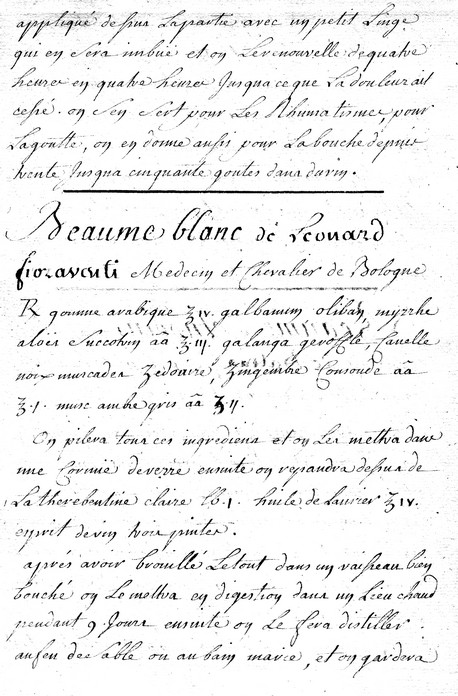 appliqué dessus la partie avec un petit Linge
qui en sera imbue et on Le renouvelle de quatre
heures en quatre heures Jusqua ce que La douleur ait
cessé. on s'en sert pour Les Rhumatismes, pour
La goutte, on en donne aussi pour La bouche depuis
trente Jusqua cinquante goutes dans du vin.
Beaume blanc de Leonard
fioraventi Medecin et Chevalier de Bologne
R gomme arabique ʒ iv. galbanum oliban, myrrhe
aloës Succotrin aã ʒ iij. galanga geroffle, Canelle
noix muscades Zedoaire, Zingembre Consoude aã
ʒ.j. musc ambre gris aã ʒ ij.
On pilera tous ces ingrediens et on Les mettra dans
une Cornüe de verre ensuite on repandra dessus de
La therebentine claire lb.j. huile de Laurier ʒ iv.
esprit de vin trois pintes.
aprés avoir brouillé Le tout dans un vaisseau bien
bouché on Le mettra en digestion dans un Lieu chaud
pendant 9 Jours ensuite on Le fera distiller
au feu de Sable ou au bain marie, et on gardera